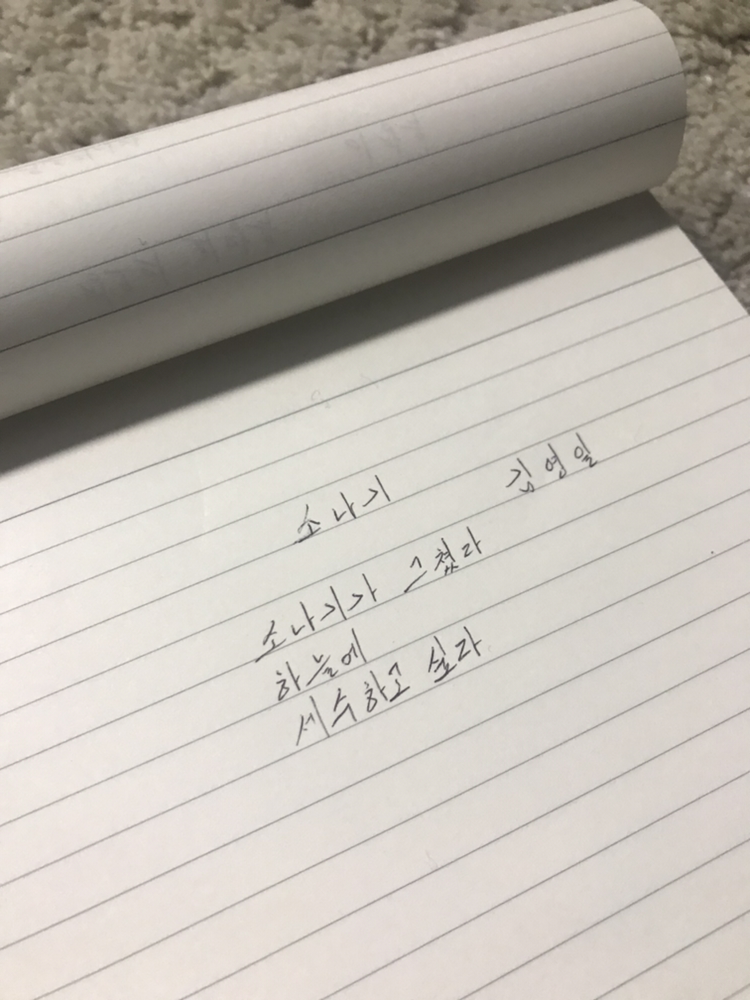 소나기 김영일
소나기가 그쳤다
하늘에
세수하고 싶다